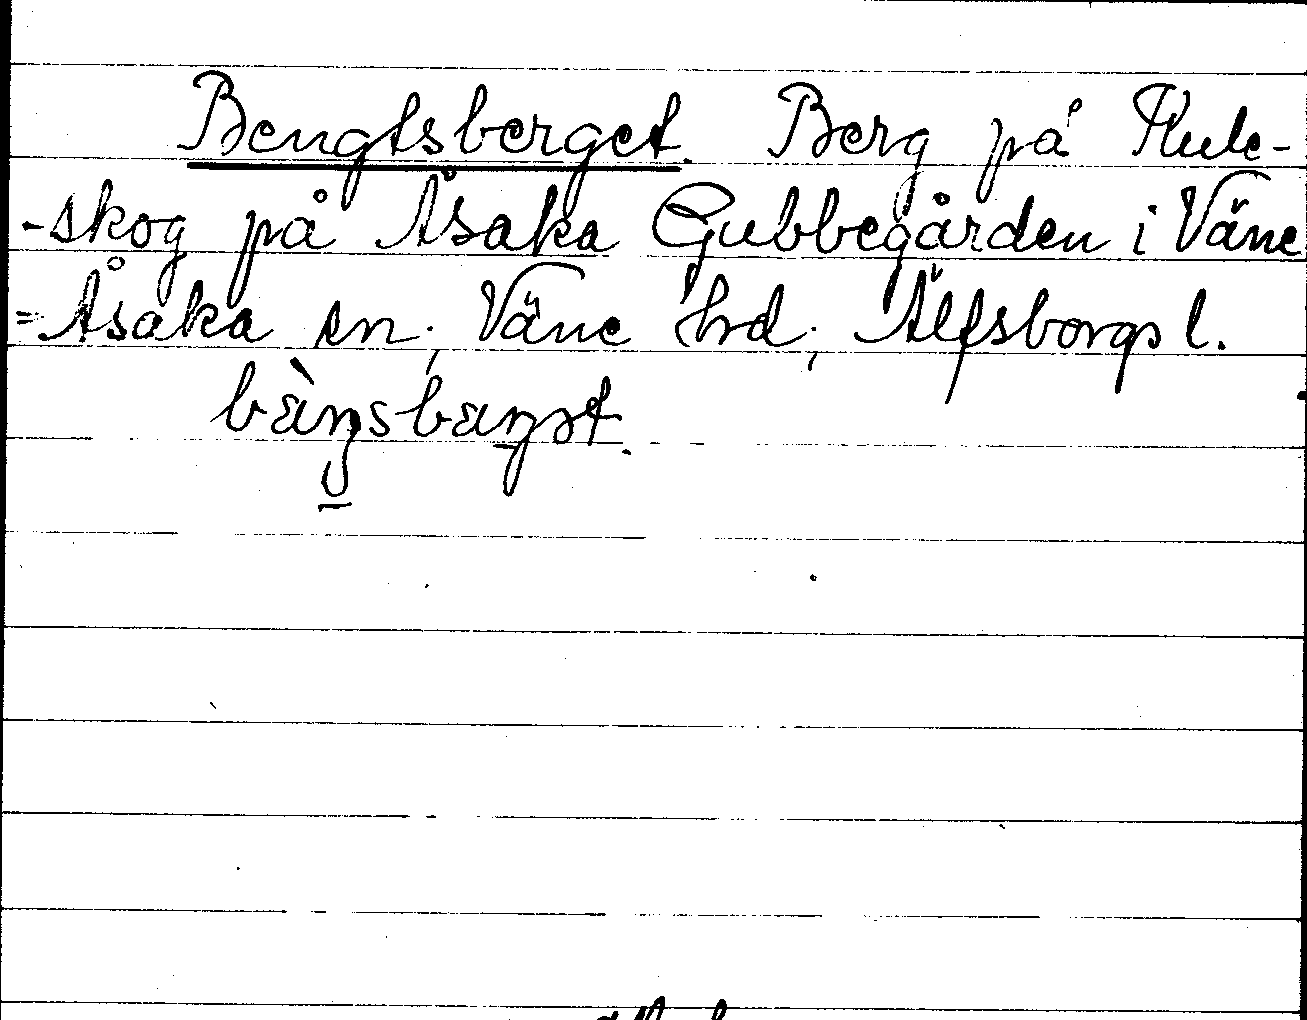 Bengtsberget. Berg på Kule-
-skog på Åsaka Gubbegården i Väne
=Åsaka sn, Väne hrd, Älfsborgs l.